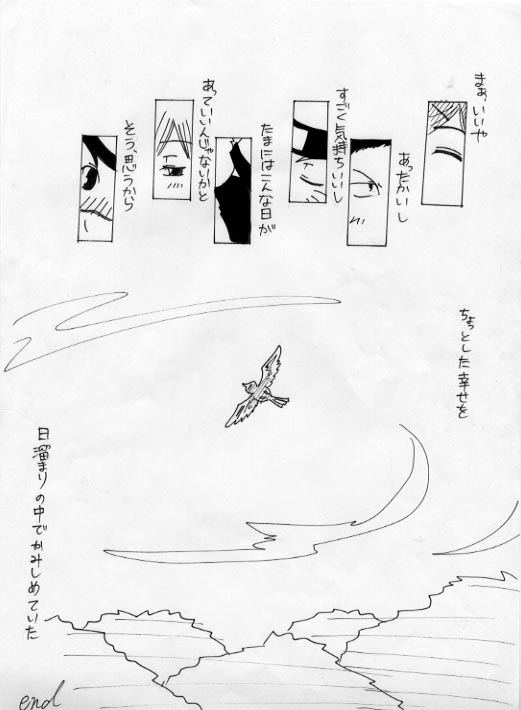 まぁ、いいや
あったかいし
すごく気持ちいいし
たまにはこんな日が
あっていいんじゃないかと
そう、思うから
ちょっとした幸せを
日溜まりの中でかみしめていた
end